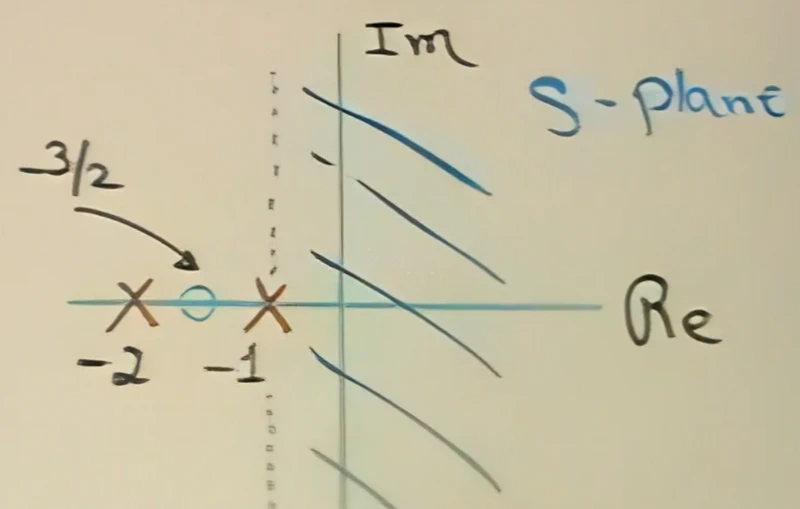 Im
S-plane
-3/2
Re
-2
-1